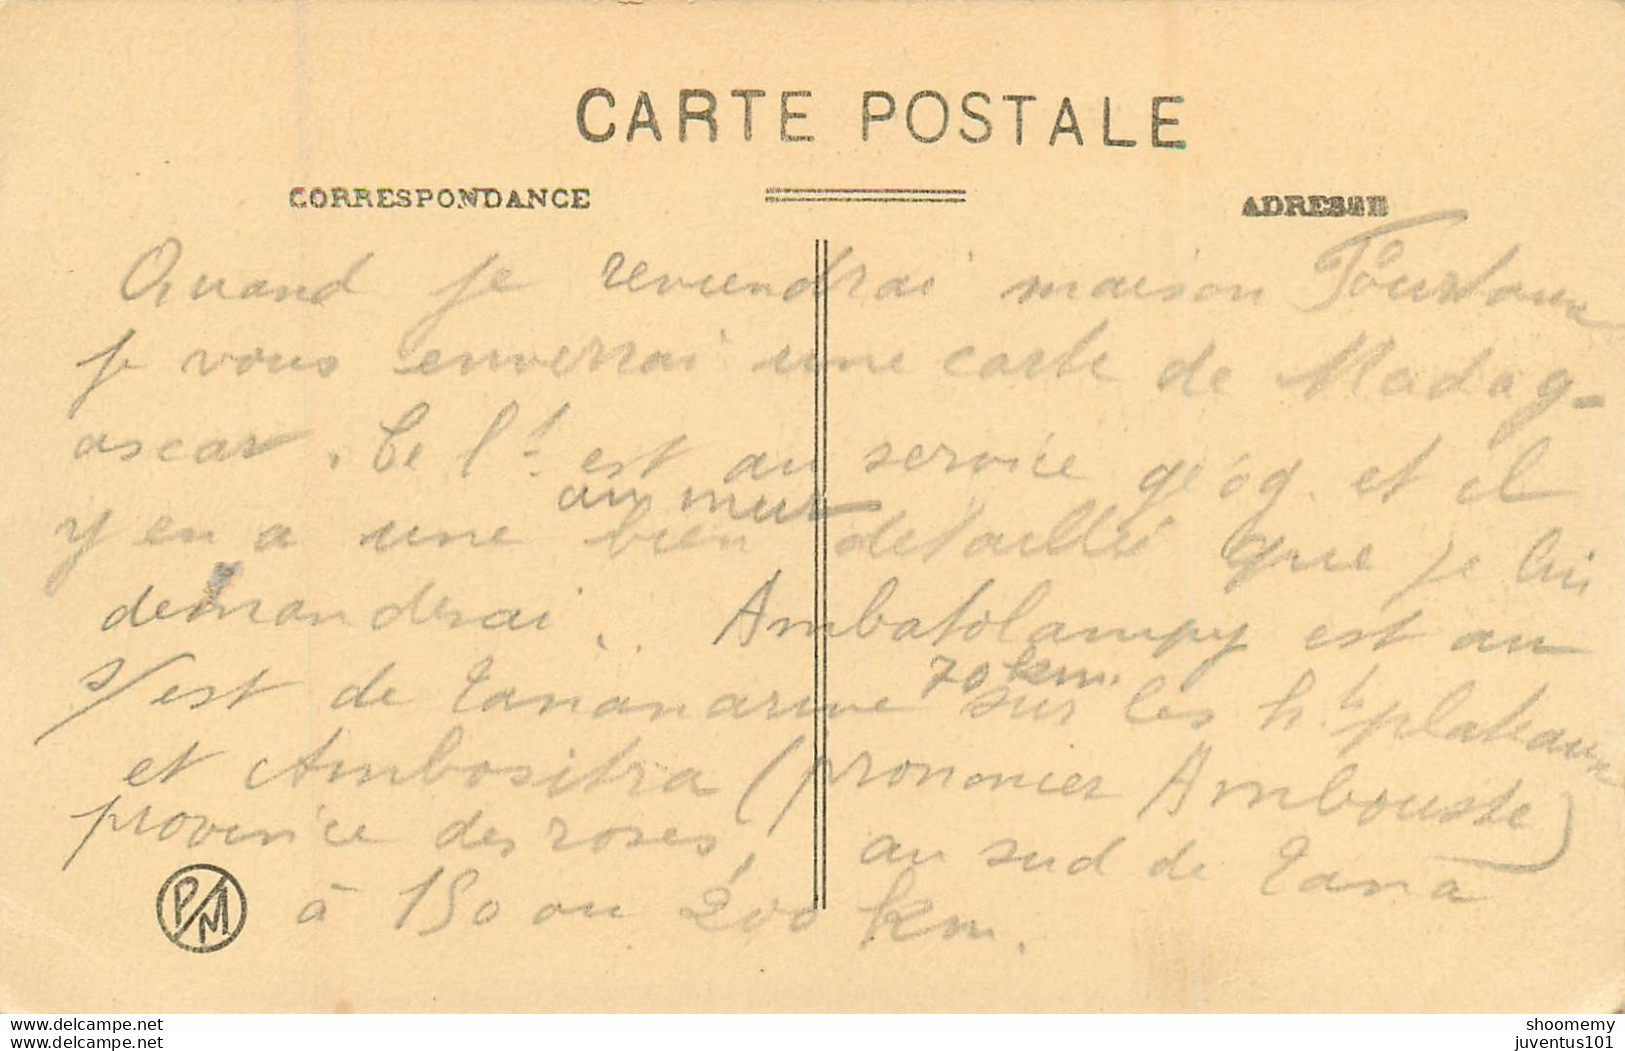 CARTE POSTALE
CORRESPONDANCE
ADRESSE
Quand je reviendrai maison
je vous enverrai une carte de Madag-
ascar. Ce l.t est au service géog. et il
au mur
y en a une bien détaillée que je lui
demandrai.. Ambatolampy est au
s/est de Tananarive 70 km. sur les h.ts plateaux
et Ambositra (prononcer Ambouste)
province des roses, au sud de Tana
à 150 ou 200 km.
P/M
delcampe.net
delcampe.net
shoomemy
juventus101